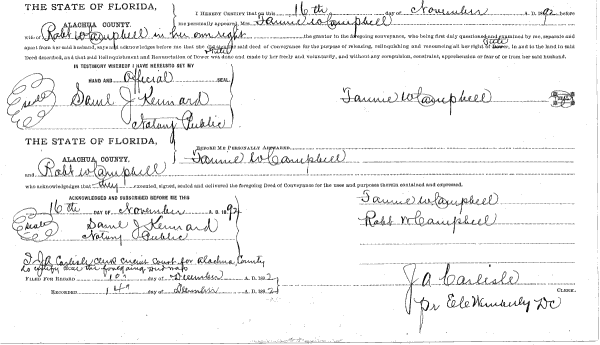 THE STATE OF FLORIDA,
ALACHUA COUNTY.
I HEREBY CERTIFY that on this 16th day of November A. D. 1892 before
me personally appeared Mrs. Fannie W Campbell
wife of Robt W Campbell in her own right the grantor in the foregoing conveyance, who being first duly questioned and examined by me, separate and
apart from her said husband, says and acknowledges before me that she did said deed of Conveyance for the purpose of releasing, relinquishing and renouncing all her right of Dower, in and to the land in said
Deed described, and that said Relinquishment and Renunciation of Dower was done and made by her freely and voluntarily, and without any compulsion, constraint, apprehension or fear of or from her said husband.
IN TESTIMONY WHEREOF I HAVE HEREUNTO SET MY
HAND AND Official SEAL
Seal Saml J Kennard Fannie W Campbell
Notary Public
THE STATE OF FLORIDA,
ALACHUA COUNTY.
BEFORE ME PERSONALLY APPEARED
Fannie W Campbell
and Robt W Campbell
who acknowledges that they executed, signed, sealed and delivered the foregoing Deed of Conveyance for the uses and purposes therein contained and expressed.
ACKNOWLEDGED AND SUBSCRIBED BEFORE ME THIS
16th DAY OF November A. D. 1892
Fannie W Campbell
Seal Saml J Kennard
Robt W Campbell
Notary Public
I J A Carlisle clerk circuit court for Alachua County
to certify that the foregoing
FILED FOR RECORD day of December A. D. 1892
RECORDED 14 day of December A. D. 1892
J A Carlisle
CLERK.
pr E Le Wimberly DC